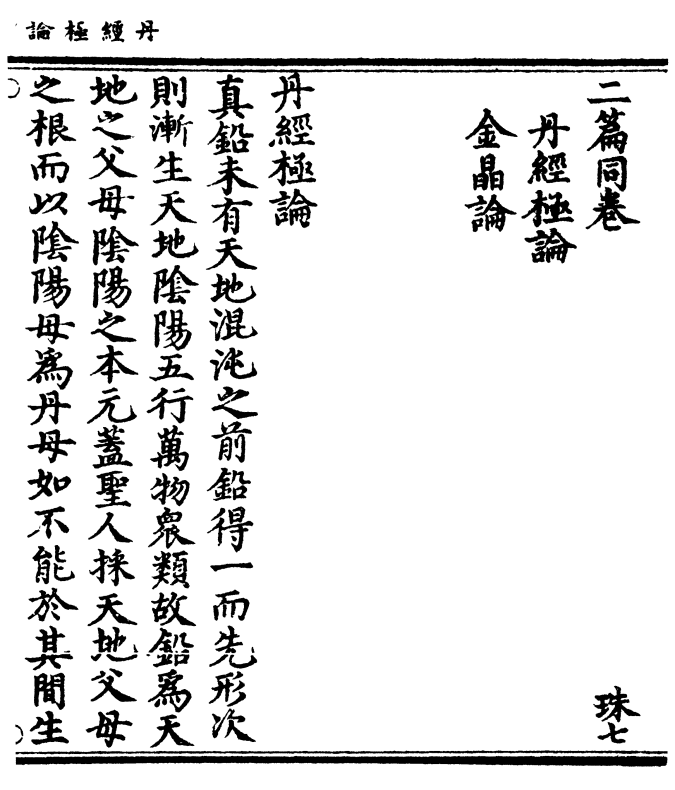 丹經極論
二篇同卷
珠七
丹經極論
金晶論
丹經極論
真鉛未有天地混沌之前鉛得一而先形次
則漸生天地陰陽五行萬物衆類故鉛爲天
地之父母陰陽之本元蓋聖人採天地父母
之根而以陰陽母爲丹母如不能於其間生